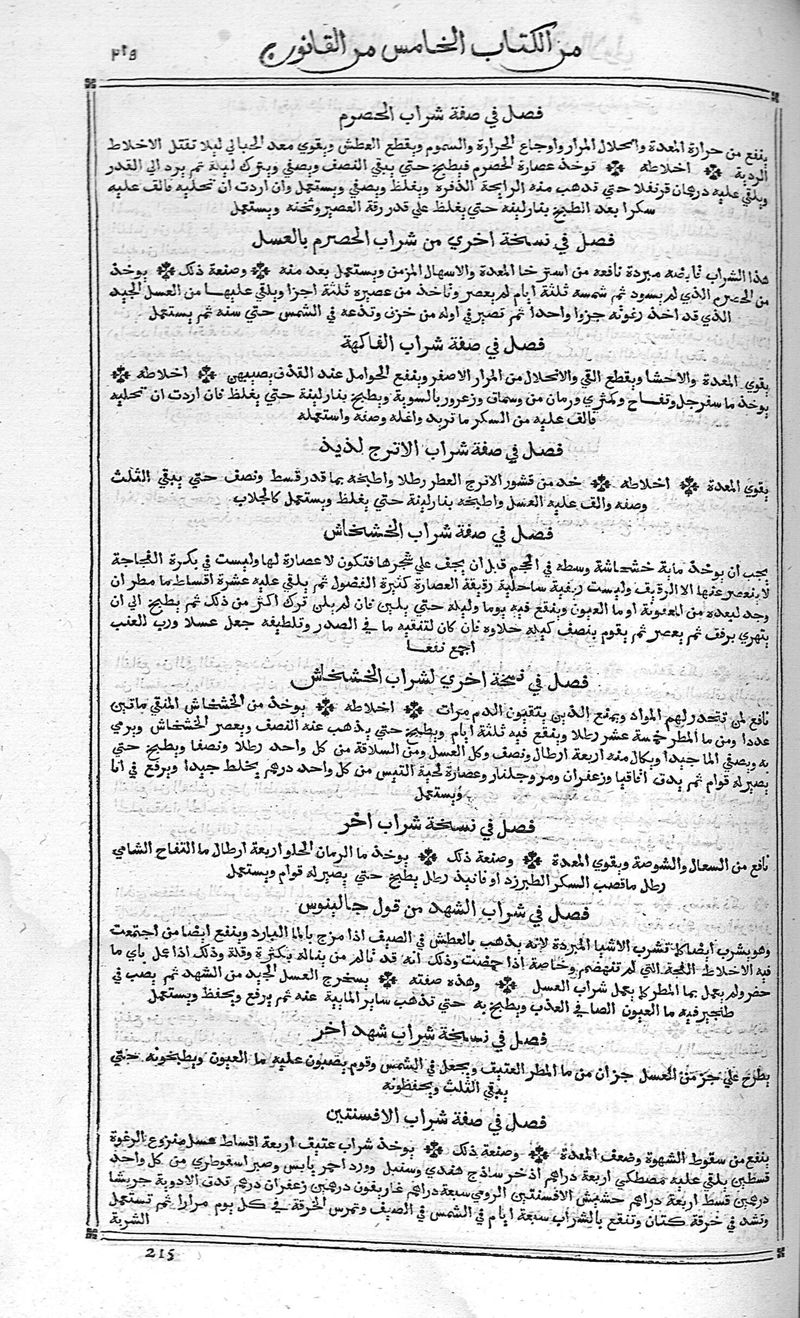 من الكتاب الخامس من القانون
٢١٥
فصل في صفة شراب الحصرم
ينفع من حرارة المعدة وانحلال المرار واوجاع الحرارة والسموم ويقطع العطش ويقوي معد الحبالي ليلا تقتل الاخلاط
الردية اخلاطه توخذ عصارة الحصرم فيطبخ حتي يبقي النصف ويصفي ويترك ليلة ثم يرد الي القدر
ويلقي عليه درهمان قرنفلا حتي تذهب منه الرايحة الذفرة ويغلظ ويصفي ويستعمل وان اردت ان تحليه فالق عليه
سكرا بعد الطبخ بنار لينة حتي يغلظ علي قدر رقة العصير وثخنه ويستعمل
فصل في نسخة اخري من شراب الحصرم بالعسل
هذا الشراب قابضه مبردة نافعه من استرخا المعدة والاسهال المزمن ويستعمل بعد منه وصنعة ذلك يوخذ
من الحصرم الذي لم يسود ثم شمسه ثلثة ايام ثم يعصر وتاخذ من عصيره ثلثة اجزا ويلقي عليها من العسل الجيد
الذي قد اخذ رغوته جزوا واحدا ثم تصير في اوله من خزف وتدعه في الشمس حتي سنه ثم يستعمل
فصل في صفة شراب الفاكهة
يقوي المعدة والاحشا ويقطع القي والانحلال من المرار الاصفر وينفع الحوامل عند القذف يصيبهن اخلاطه
يوخذ ما سفرجل وتفاح وكمثري ورمان من وسماق وزعرور بالسوية ويطبخ بنار لينة حتي يغلظ فان اردت ان تحليه
فالق عليه من السكر ما تريد واغله وصفه واستعمله
فصل في صفة شراب الاترج لذيذ
يقوي المعدة اخلاطه خذ من قشور الاترج العطر رطلا واطبخه بما قدر قسط ونصف حتي يبقي الثلث
وصفه والق عليه العسل واطبخه بنار لينة حتي يغلظ ويستعمل كالجلاب
فصل في صفة شراب الخشخاش
يجب ان يوخذ ماية خشخاشة وسطه في الحجم قبل ان يجف علي شجرها فتكون لا عصارة لها وليست في بكرة الفجاجة
لا ينعصر عنها الا الرقيق وليست ريفية ساحلية رقيقة العصارة كثيرة الفضول ثم يلقي عليه عشرة اقساط ما مطر ان
وجد لبعده من العفونة او ما العيون وينقع فيه يوما وليله حتي يلين فان لم يلن ترك اكثر من ذلك ثم يطبخ الي ان
يتهري برفق ثم يعصر ثم يقوم بنصف كيله حلاوه فان كان لتنقيه ما في الصدر وتلطيفه جعل عسلا ورب العنب
اجمع نفعا
فصل في نسخة اخري لشراب الخشخاش
نافع لمن تنحدر لهم المواد ويمنع الذين يتقيون الدم مرات اخلاطه يوخذ من الخشخاش المنقي ماتين
عددا ومن ما المطر خمسة عشر رطلا وينقع فيه ثلثة ايام ويطبخ حتي يذهب عنه النصف ويعصر الخشخاش ويرمي
به ويصفي الما جيدا ويكال منه اربعة ارطال ونصف وكل العسل ومن السلاقة من كل واحد رطلا ونصفا ويطبخ حتي
يصير له قوام ثم يدق اقاقيا وزعفران ومر وجلنار وعصارة لحية التيس من كل واحد درهم يخلط جيدا ويرفع في انا
ويستعمل
فصل في نسخة شراب اخر
نافع من السعال والشوصة ويقوي المعدة وصنعة ذلك يوخذ ما الرمان الحلو اربعة ارطال ما التفاح الشامي
رطل ما قصب السكر الطبرزد او فانيذ رطل يطبخ حتي يصير له قوام ويستعمل
فصل في شراب الشهد من قول جالينوس
وهو يشرب ايضا كما تشرب الاشيا المبردة لانه يذهب بالعطش في الصيف اذا مزج بالما البارد وينفع ايضا من اجتمعت
فيه الاخلاط الفجة التي لم تنهضم وخاصة اذا حمضت وذلك انه قد نالم من يناله بكثرة وقلة وذلك اذا عل باي ما
حفر ولم يعمل بما المطر كما يعمل شراب العسل وهذه صفته يستخرج العسل الجيد من الشهد ثم يصب في
طنجير فيه ما العيون الصافي العذب ويطبخ به حتي تذهب ساير المايية عنه ثم يرفع ويحفظ ويستعمل
فصل في نسخة شراب شهد اخر
يطرح علي جز من العسل جزان من ما المطر العتيق ويجعل في الشمس وقوم يصبون عليه ما العيون ويطبخونه حتي
يبقي الثلث ويحفظونه
فصل في صفة شراب الافسنتين
ينفع من سقوط الشهوة وضعف المعدة وصنعة ذلك يوخذ شراب عتيق اربعة اقساط عسل منزوع الرغوة
قسطين يلقي عليه مصطكي اربعة دراهم اذخر ساذج هندي وسنبل وورد احمر يابس وصبر اسقوطري من كل واحد
درهمين قسط اربعة دراهم حشيش الافسنتين الرومي سبعة دراهم غاريقون درهمين زعفران درهم تدق الادوية جريشا
وتشد في خرقة كتان وتنقع بالشراب سبعة ايام في الشمس في الصيف وتمرس الخرقة في كل يوم مرارا ثم تستعمل
الشربة
215